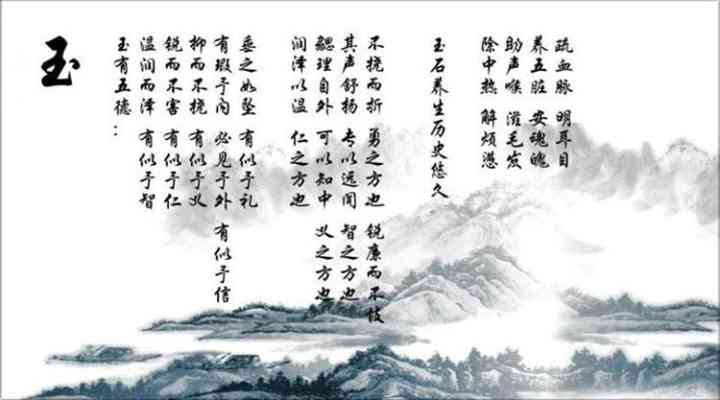 玉
玉有五德：
温润而泽 有似于智
锐而不害 有似于仁
抑而不挠 有似于义
有瑕于内 必见于外 有似于信
垂之如坠 有似于礼
润泽以温 仁之方也
鳃理自外 可以知中 义之方也
其声舒扬 专以远闻 智之方也
不挠而折 勇之方也 锐廉而不忮
玉石养生历史悠久
除中热 解烦懑
助声喉 滋毛发
养五脏 安魂魄
疏血脉 明耳目